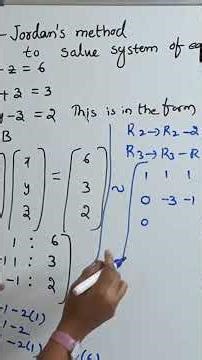 -Jordan's method
to salue system of eq
-z = 6
+ 2 = 3
y-2 = 2 This is in the form
B
x 6
y = 3
2 2
R2→R2-2
R3→R3-R
~ 1 1 1
0 -3 -1
0
1 : 6
-1 1 : 3
-1 : 2
-1-2(1)
1-2
-2(1)